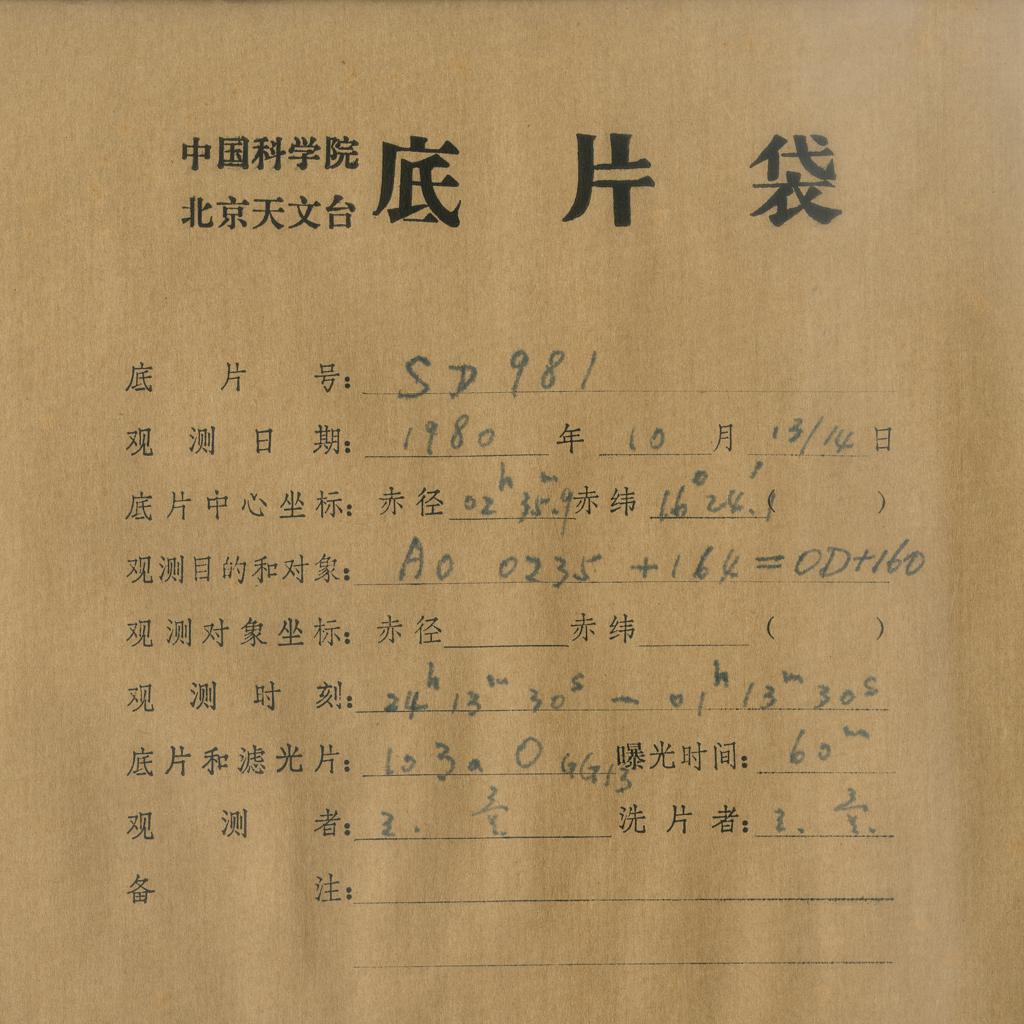 中国科学院
北京天文台
底片袋
底片号: SD 981
观测日期: 1980 年 10 月 13/14 日
底片中心坐标: 赤径 02h 35m.9 赤纬 16° 24.'1 ( )
观测目的和对象: AO 0235 +164 = OD+160
观测对象坐标: 赤径 赤纬 ( )
观测时刻: 24h 13m 30s — 01h 13m 30s
底片和滤光片: 103a O GG13 曝光时间: 60m
观测者: 洗片者:
备注: